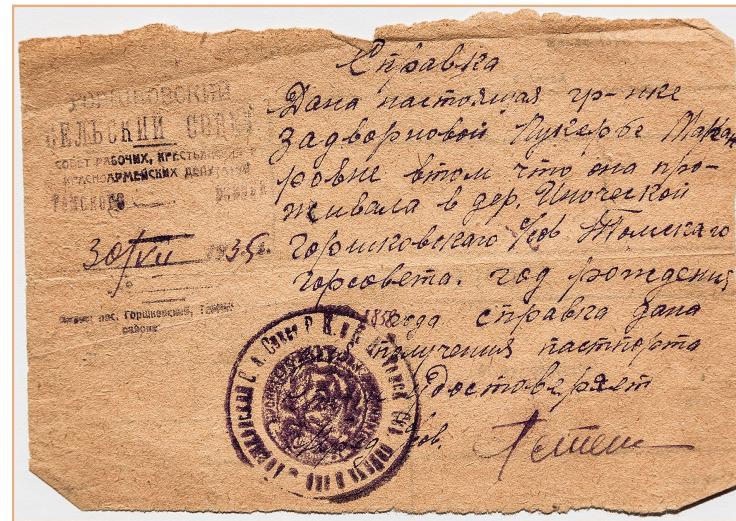 ГОРШКОВСКИЙ
СЕЛЬСКИЙ СОВЕТ
СОВЕТ РАБОЧИХ, КРЕСТЬЯНСКИХ И
КРАСНОАРМЕЙСКИХ ДЕПУТАТОВ
Томского района
30/VII 1935 г.
№
пос. Горшковский, Томск.
района
Справка
Дана настоящая гр-нке
Задворновой Лукерье Макаровне
втом что она про-
живала в дер. Иноческой
Горшковскаго с/сов Томскаго
горсовета. год рождения
1858 года справка дана
получения паспорта
Удоставеряет